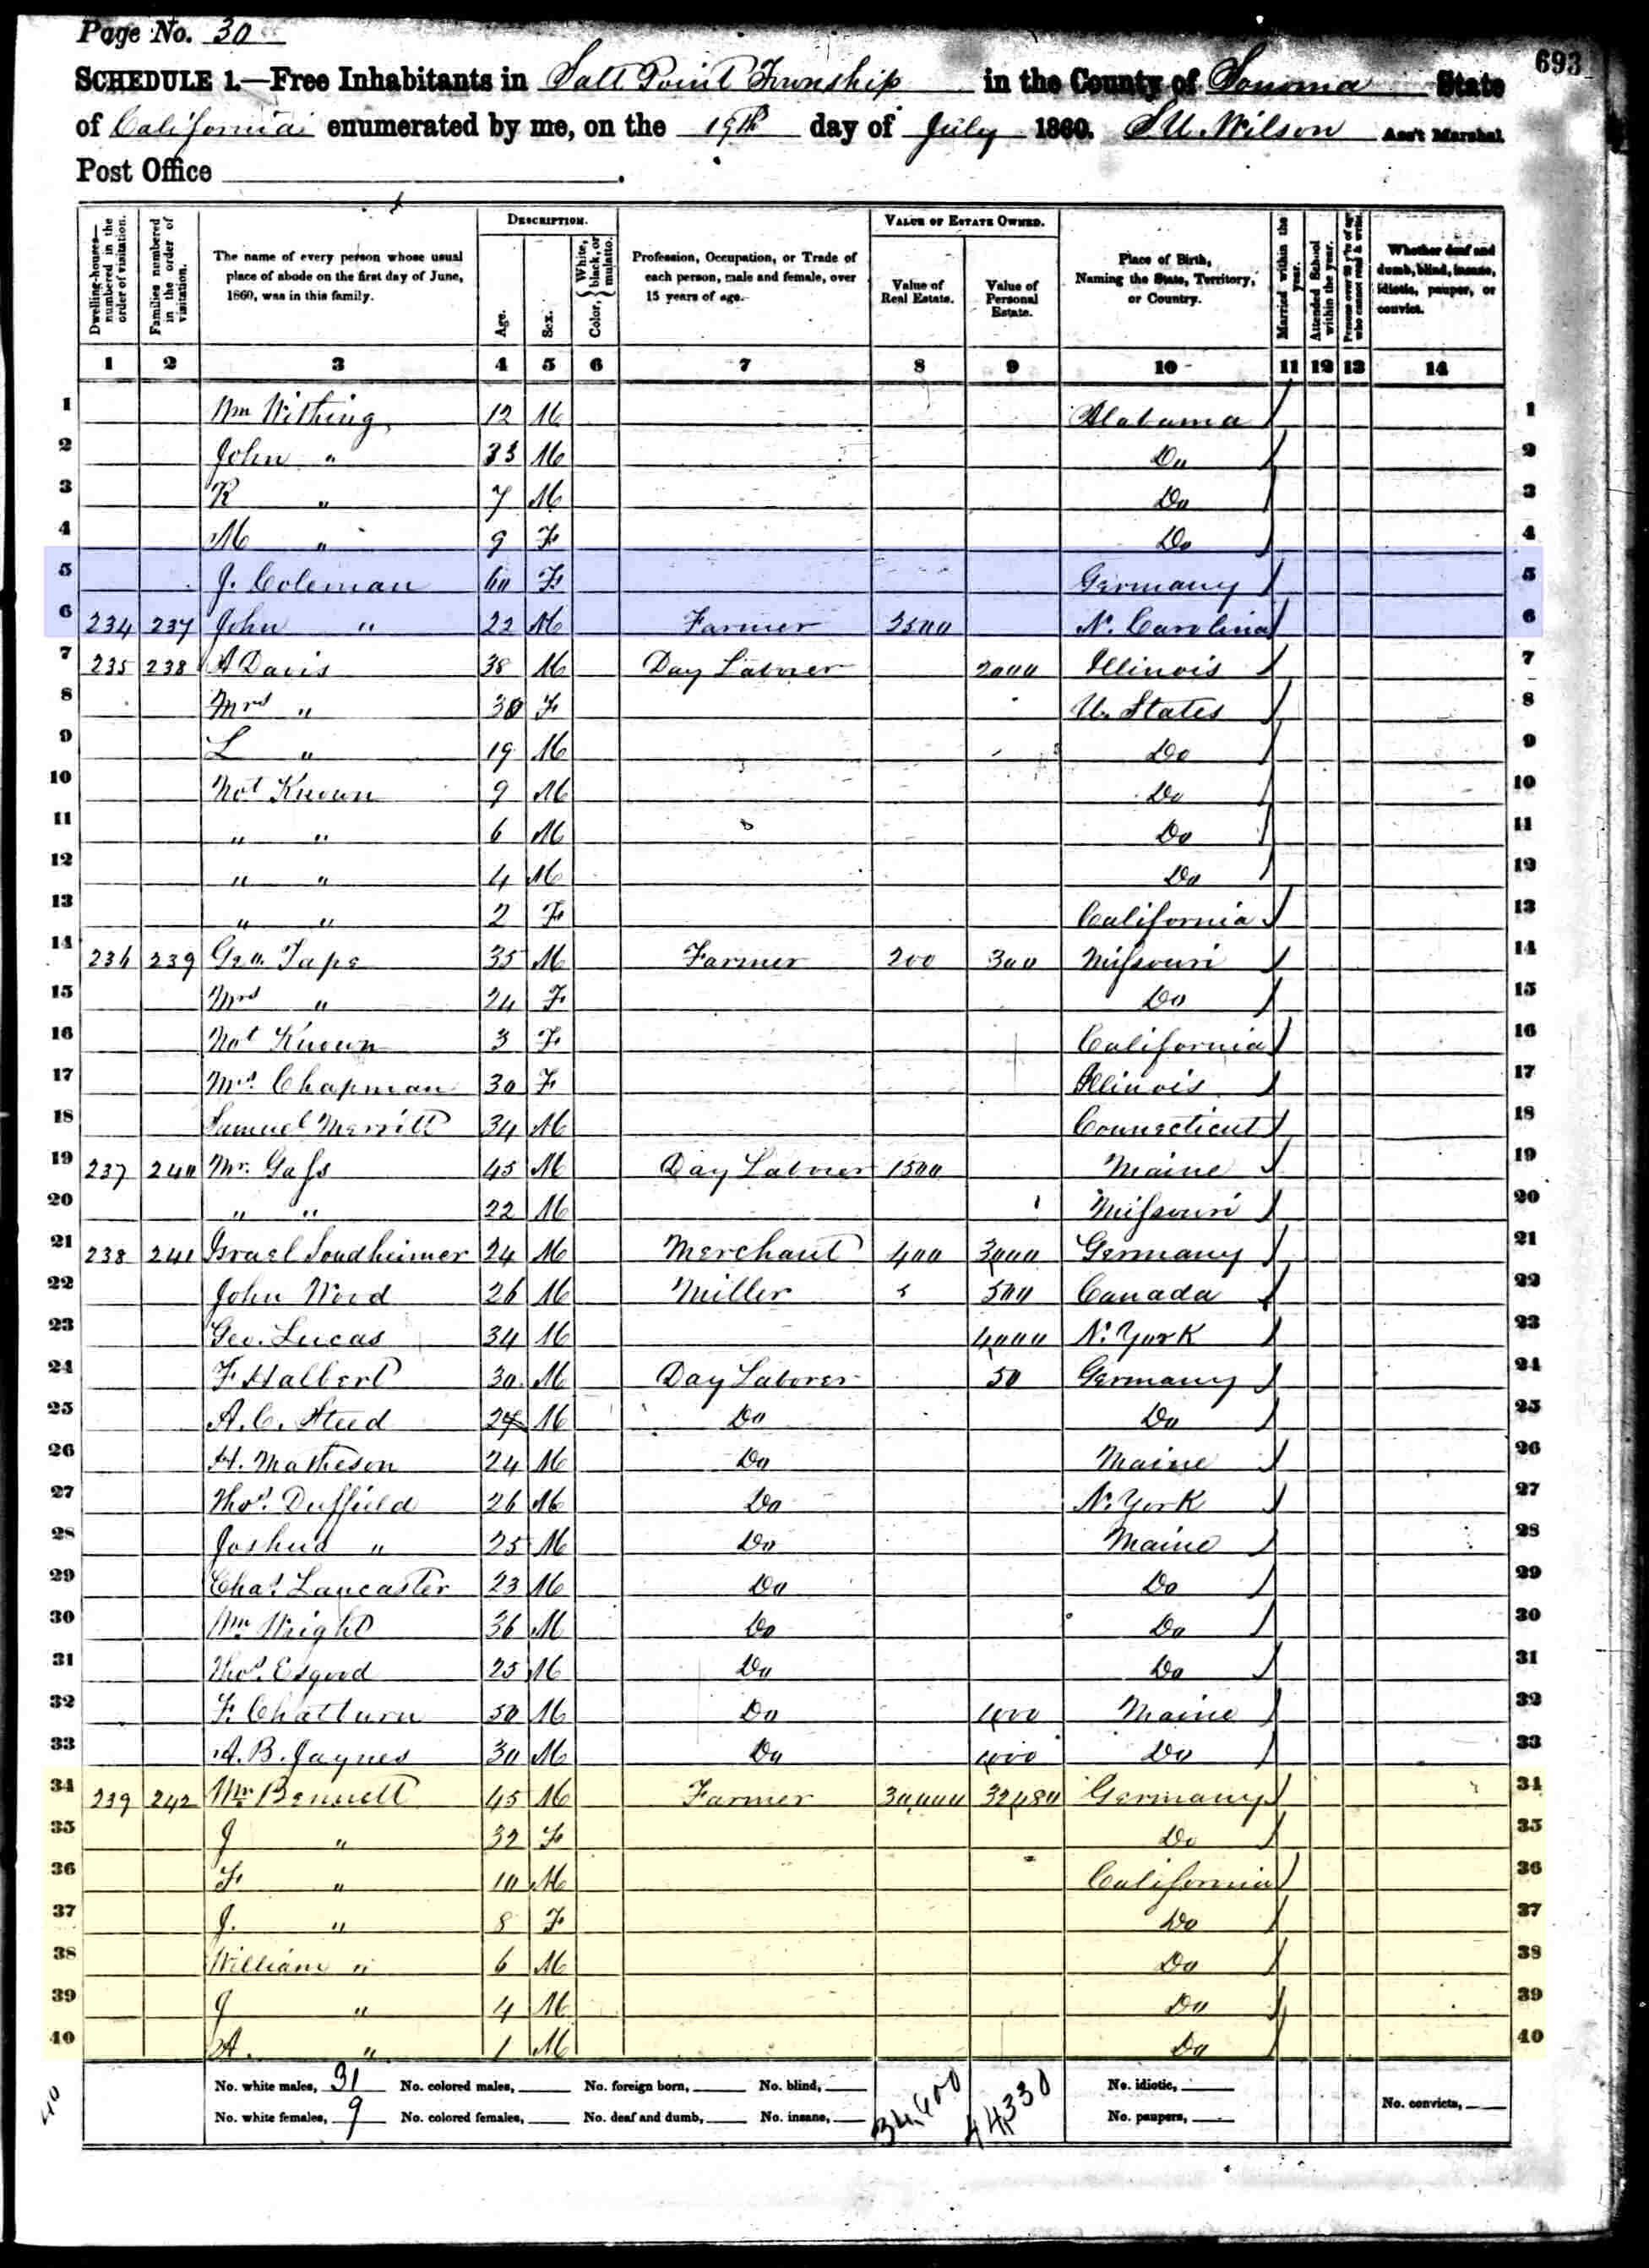 Page No. 30
693
SCHEDULE 1.—Free Inhabitants in Salt Point Township in the County of Sonoma State
of California enumerated by me, on the 19th day of July 1860. S U. Wilson Ass't Marshal
Post Office
Dwelling-houses—numbered in the order of visitation.
Families numbered in the order of visitation.
The name of every person whose usual place of abode on the first day of June, 1860, was in this family.
DESCRIPTION.
Age.
Sex.
Color, { White, black, or mulatto.
Profession, Occupation, or Trade of each person, male and female, over 15 years of age.
VALUE OF ESTATE OWNED.
Value of Real Estate.
Value of Personal Estate.
Place of Birth, Naming the State, Territory, or Country.
Married within the year.
Attended School within the year.
Persons over 20 y'rs of age who cannot read & write.
Whether deaf and dumb, blind, insane, idiotic, pauper, or convict.
1 2 3 4 5 6 7 8 9 10 11 12 13 14
1 Wm Withing 12 M Alabama / 1
2 John " 33 M Do / 2
3 R " 7 M Do / 3
4 M " 9 F Do / 4
5 J. Coleman 60 F Germany / 5
6 234 237 John " 22 M Farmer 2500 N. Carolina / 6
7 235 238 A Davis 38 M Day Laborer 2000 Illinois / 7
8 Mrs " 30 F U. States / 8
9 L " 19 M Do / 9
10 Not Known 9 M Do / 10
11 " " 6 M Do / 11
12 " " 4 M Do / 12
13 " " 2 F California / 13
14 236 239 Geo. Tape 35 M Farmer 200 300 Missouri / 14
15 Mrs " 24 F Do / 15
16 Not Known 3 F California / 16
17 Mrs. Chapman 30 F Illinois / 17
18 Samuel Merritt 34 M Connecticut / 18
19 237 240 Mr. Gass 45 M Day Laborer 1500 Maine / 19
20 " " 22 M Missouri / 20
21 238 241 Israel Soudheimer 24 M Merchant 400 3000 Germany / 21
22 John Wood 26 M Miller 500 Canada / 22
23 Geo. Lucas 34 M 4000 N. York / 23
24 F. Halbert 30 M Day Laborer 50 Germany / 24
25 A. C. Steed M Do Do / 25
26 H. Matheson 24 M Do Maine / 26
27 Thos. Duffield 26 M Do N. York / 27
28 Joshua " 25 M Do Maine / 28
29 Chas. Lancaster 23 M Do Do / 29
30 Wm. Wright 36 M Do Do / 30
31 Thos. Esgood 25 M Do Do / 31
32 F. Chatturn 50 M Do Maine / 32
33 A. B. Jaynes 30 M Do Do / 33
34 239 242 Wm Bennett 45 M Farmer 30,000 32,480 Germany / 34
35 J " 32 F Do / 35
36 F " 10 M California / 36
37 J. " 8 F Do / 37
38 William " 6 M Do / 38
39 J " 4 M Do / 39
40 A. " 1 M Do / 40
No. white males, 31 No. colored males, No. foreign born, No. blind, No. idiotic,
No. white females, 9 No. colored females, No. deaf and dumb, No. insane, No. paupers, No. convicts,
40
34,600
44,330